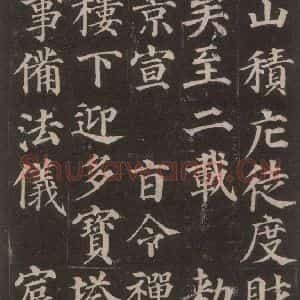 山積庀徒度財
矣至二載敕
景宣旨令禪
樓下迎多寶塔
事備法儀宸
Shufawang.CN